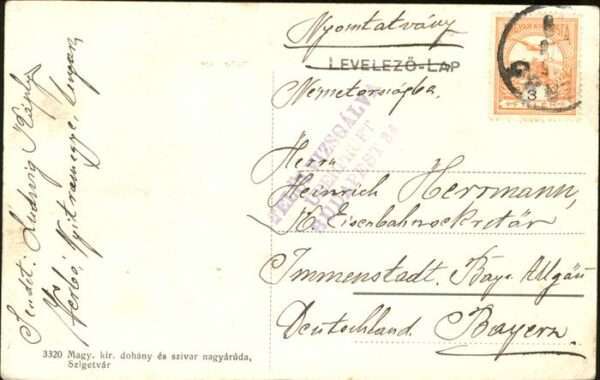 Nyomtatvány
LEVELEZŐ-LAP
Németországba.
Herrn
Heinrich Herrmann,
K. Eisenbahnsekretär
Immenstadt. Bayr. Allgäu
Deutschland. Bayern.
Sendet: Ludwig
Verbó, Nyitramegye, Ungarn
FELÜLVIZSGÁLVA
BUDAPEST
3320 Magy. kir. dohány és szivar nagyárúda,
Szigetvár